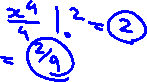 x⁴/4 |.² = 2
= 2/9